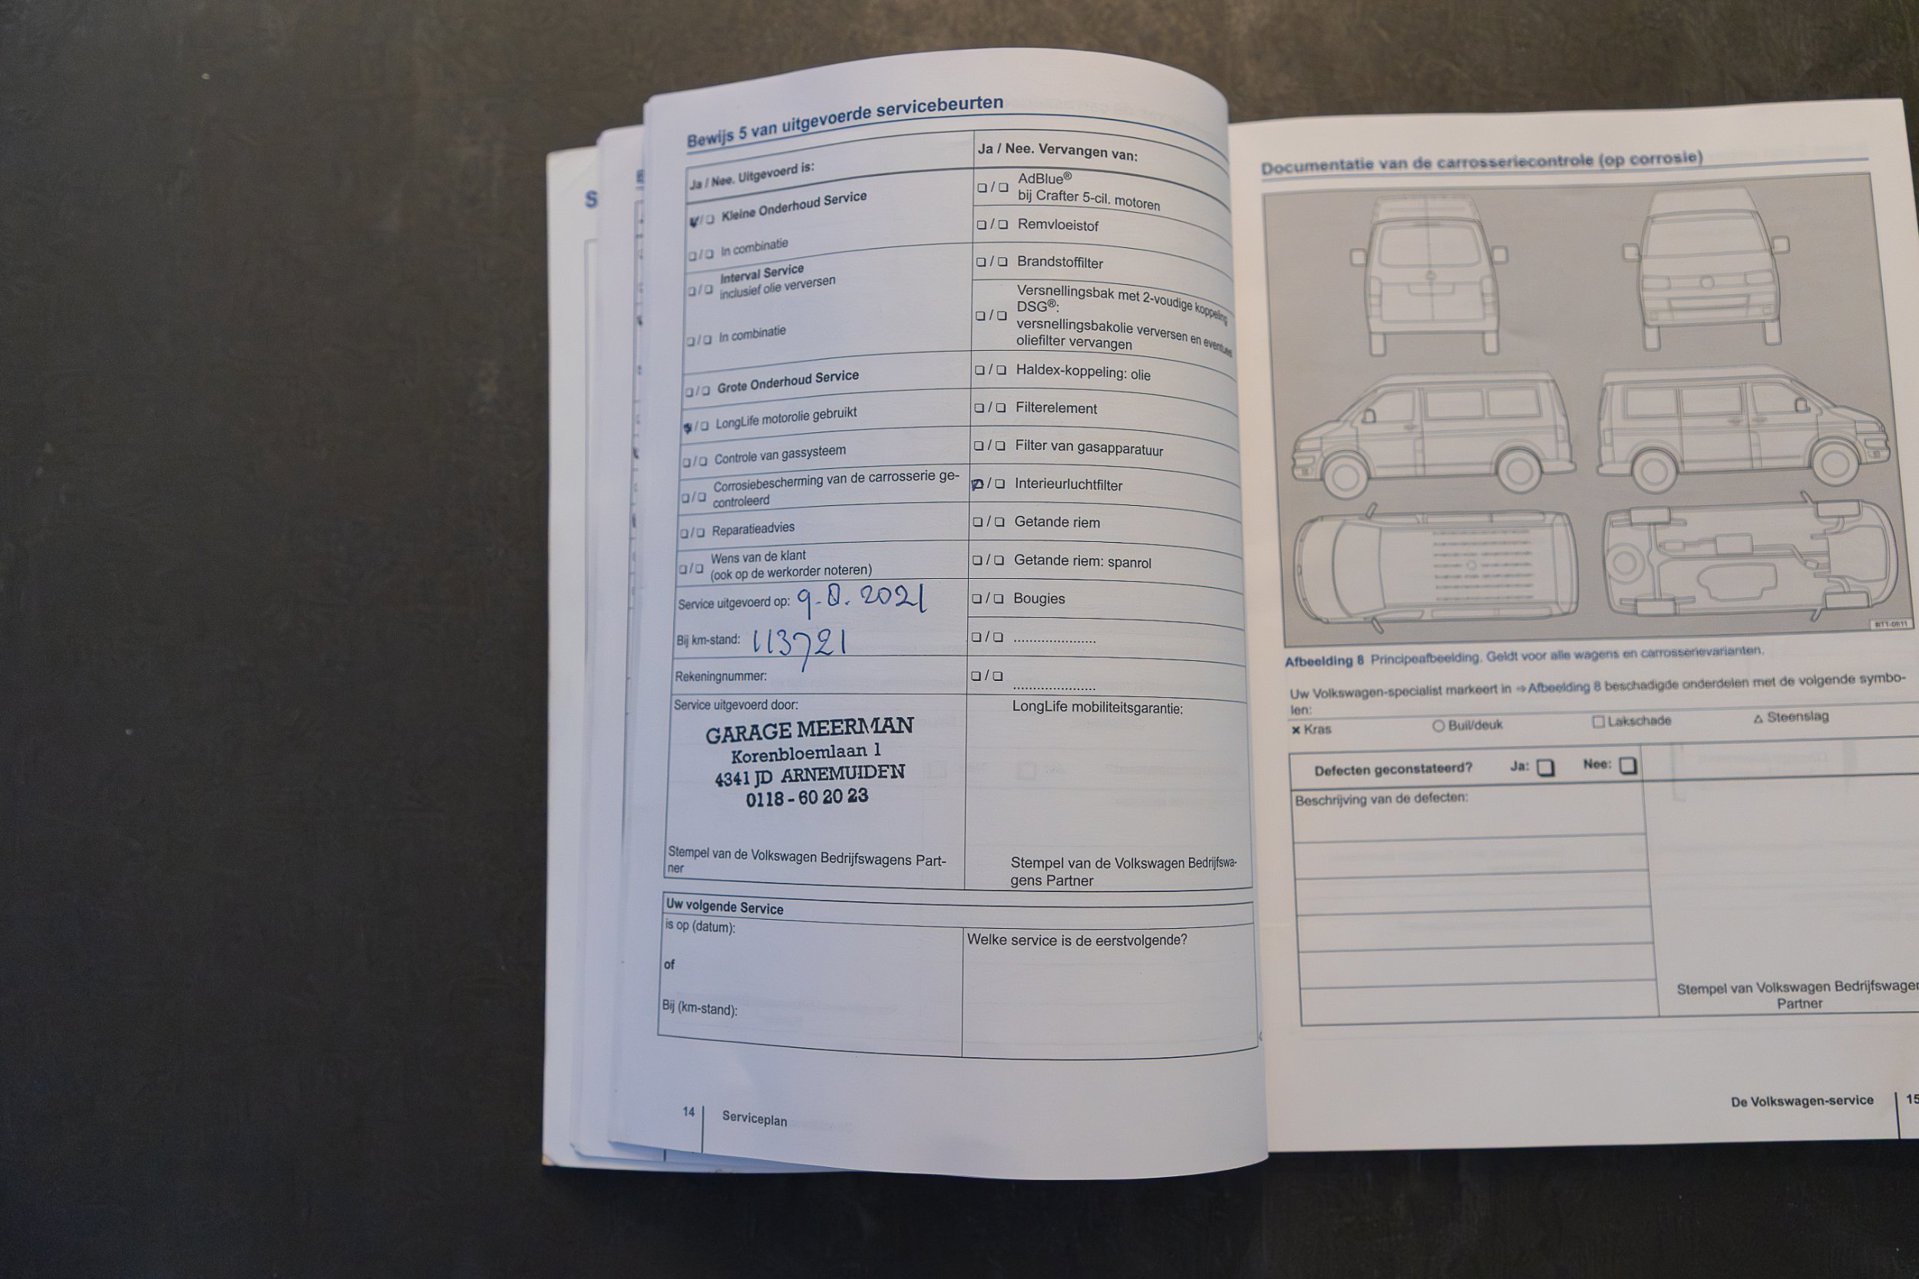 Bewijs 5 van uitgevoerde servicebeurten
Ja / Nee. Uitgevoerd is:
Kleine Onderhoud Service
In combinatie
Interval Service
inclusief olie verversen
In combinatie
Grote Onderhoud Service
LongLife motorolie gebruikt
Controle van gassysteem
Corrosiebescherming van de carrosserie ge-
controleerd
Reparatieadvies
Wens van de klant
(ook op de werkorder noteren)
Service uitgevoerd op: 9.8.2021
Bij km-stand: 113721
Rekeningnummer:
Service uitgevoerd door:
GARAGE MEERMAN
Korenbloemlaan 1
4341 JD ARNEMUIDEN
0118 - 60 20 23
Stempel van de Volkswagen Bedrijfswagens Part-
ner
Ja / Nee. Vervangen van:
AdBlue®
bij Crafter 5-cil. motoren
Remvloeistof
Brandstoffilter
Versnellingsbak met 2-voudige koppeling
DSG®:
versnellingsbakolie verversen en eventueel
oliefilter vervangen
Haldex-koppeling: olie
Filterelement
Filter van gasapparatuur
Interieurluchtfilter
Getande riem
Getande riem: spanrol
Bougies
LongLife mobiliteitsgarantie:
Stempel van de Volkswagen Bedrijfswa-
gens Partner
Uw volgende Service
is op (datum):
of
Bij (km-stand):
Welke service is de eerstvolgende?
14 Serviceplan
Documentatie van de carrosseriecontrole (op corrosie)
BT1-0611
Afbeelding 8 Principeafbeelding. Geldt voor alle wagens en carrosserievarianten.
Uw Volkswagen-specialist markeert in ⇒ Afbeelding 8 beschadigde onderdelen met de volgende symbo-
len:
× Kras ○ Buil/deuk □ Lakschade △ Steenslag
Defecten geconstateerd? Ja: □ Nee: □
Beschrijving van de defecten:
Stempel van Volkswagen Bedrijfswagen
Partner
De Volkswagen-service 15